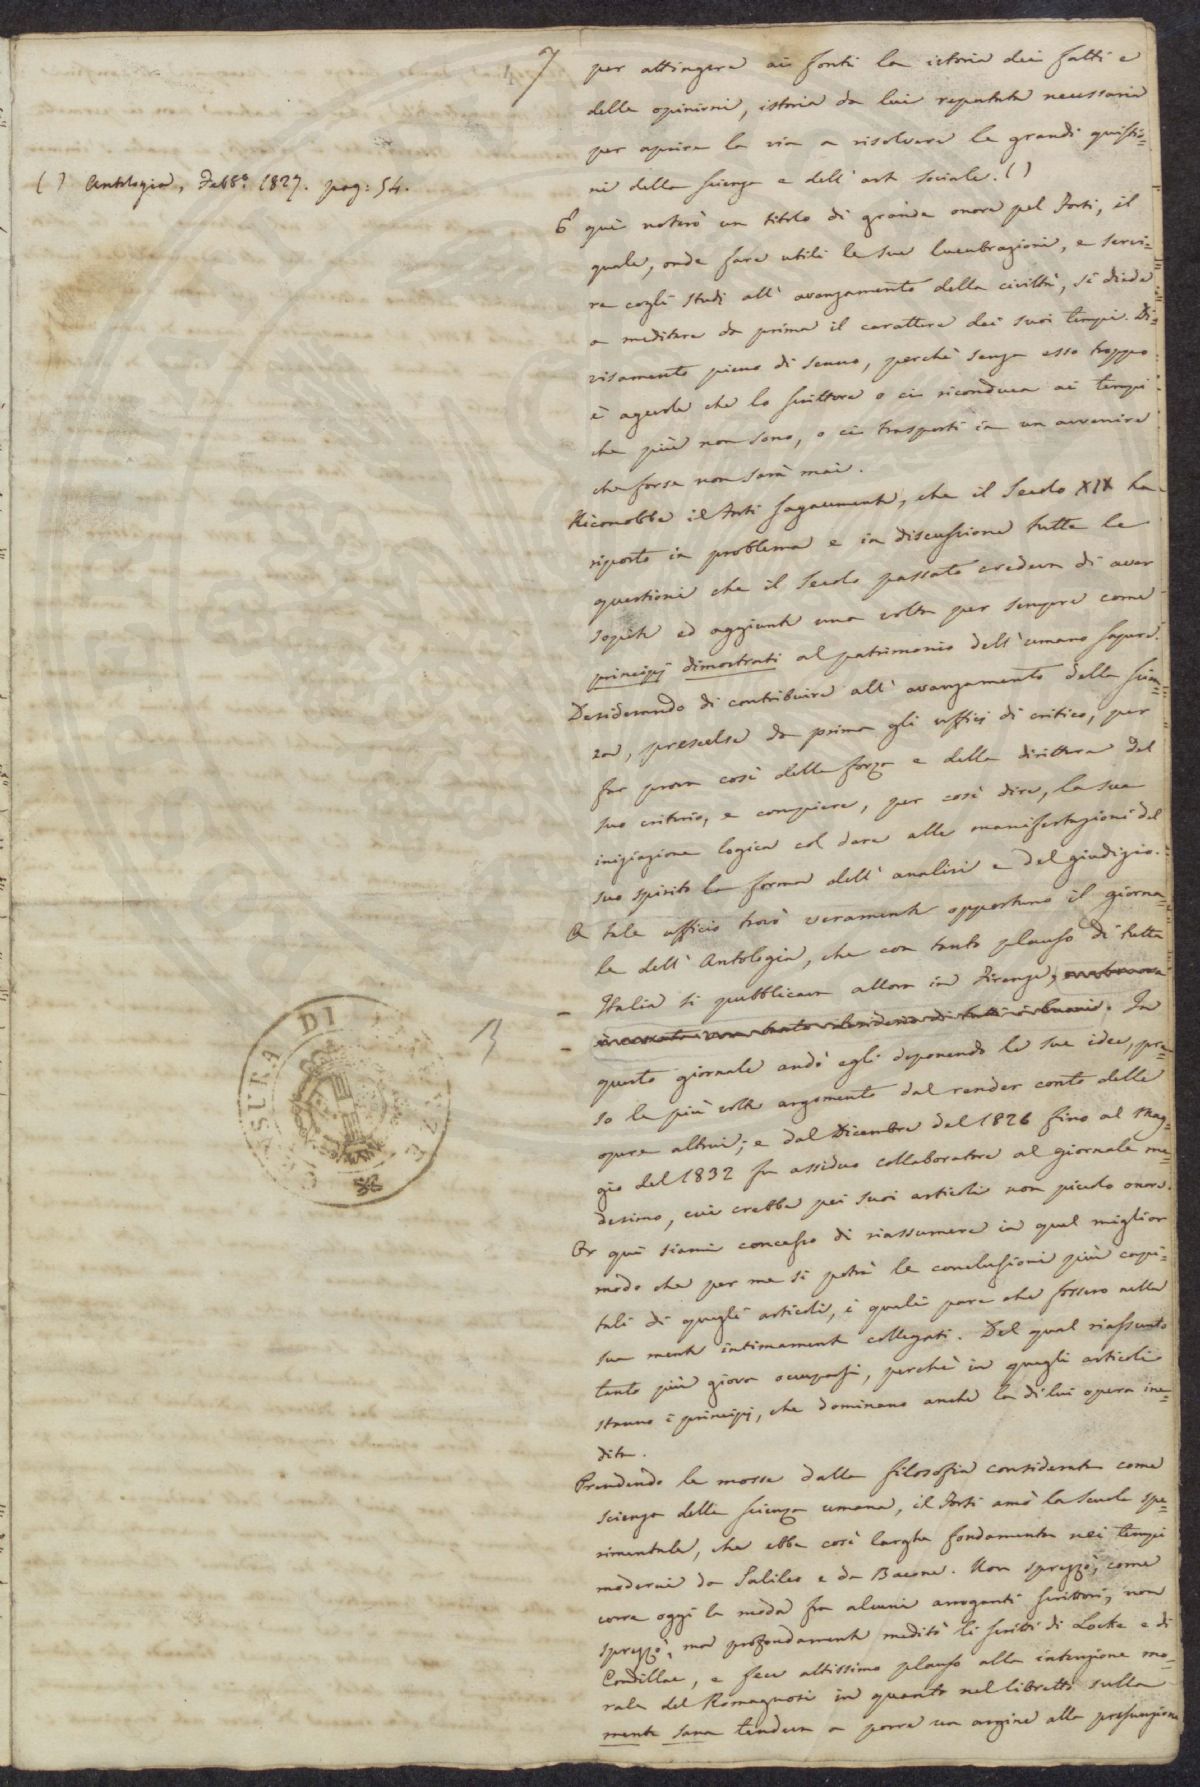 7
per attingere ai fonti la istoria dei fatti e
delle opinioni, istoria da lui reputata necessaria
per aprire la via a risolvere le grandi quistio=
ni della scienza e dell' arte sociale. ( )
( ) Antologia, Febb.º 1827. pag: 54.
E qui noterò un titolo di grande onore pel Forti, il
quale, onde fare utili le sue lucubrazioni, e servi=
re cogli studi all' avanzamento della civiltà, si diede
a meditare da prima il carattere dei suoi tempi. Di=
visamento pieno di senno, perchè senza esso troppo
è agevole che lo scrittore o ci riconduca ai tempi
che più non sono, o ci trasporti in un avvenire
che forse non sarà mai.
Riconobbe il Forti sagacemente, che il Secolo XIX ha
riposto in problema e in discussione tutte le
questioni che il Secolo passato credeva di aver
sopite ed aggiunte una volta per sempre come
principj dimostrati al patrimonio dell' umano sapere.
Desiderando di contribuire all' avanzamento della scien=
za, prescelse da prima gli uffizj di critico, per
far prova così della forza e della dirittura del
suo criterio, e compiere, per così dire, la sua
iniziazione logica col dare alle manifestazioni del
suo spirito la forma dell' analisi e del giudizio.
A tale ufficio trovò veramente opportuno il giorna=
le dell' Antologia, che con tanto plauso di tutta
Italia si pubblicava allora in Firenze,
tanto desiderio di tutti i buoni. In
questo giornale andò egli deponendo le sue idee, pre=
so le più volte argomento dal render conto delle
opere altrui; e dal Dicembre del 1826 fino al Mag=
gio del 1832 fu assiduo collaboratore al giornale me=
desimo, cui crebbe pei suoi articoli non piccolo onore.
Or qui siami concesso di riassumere in quel miglior
modo che per me si potrà le conclusioni più capi=
tali di quegli articoli, i quali pare che fossero nella
sua mente intimamente collegati. Del qual riassunto
tanto più giova occuparsi, perchè in quegli articoli
stanno i principj, che dominano anche la di lui opera ine=
dita.
Prendendo le mosse dalla filosofia considerata come
scienza della scienza umana, il Forti amò la scuola spe=
rimentale, che ebbe così larghe fondamenta nei tempi
moderni da Galileo e da Bacone. Non sprezzò, come
corre oggi la moda fra alcuni arroganti scrittori, non
sprezzò, ma profondamente meditò li scritti di Locke e di
Condillac, e fece altissimo plauso alla intenzione mo=
rale del Romagnosi in quanto nel libretto sulla
mente sana tendeva a porre un argine alla presunzione
CENSURA DI